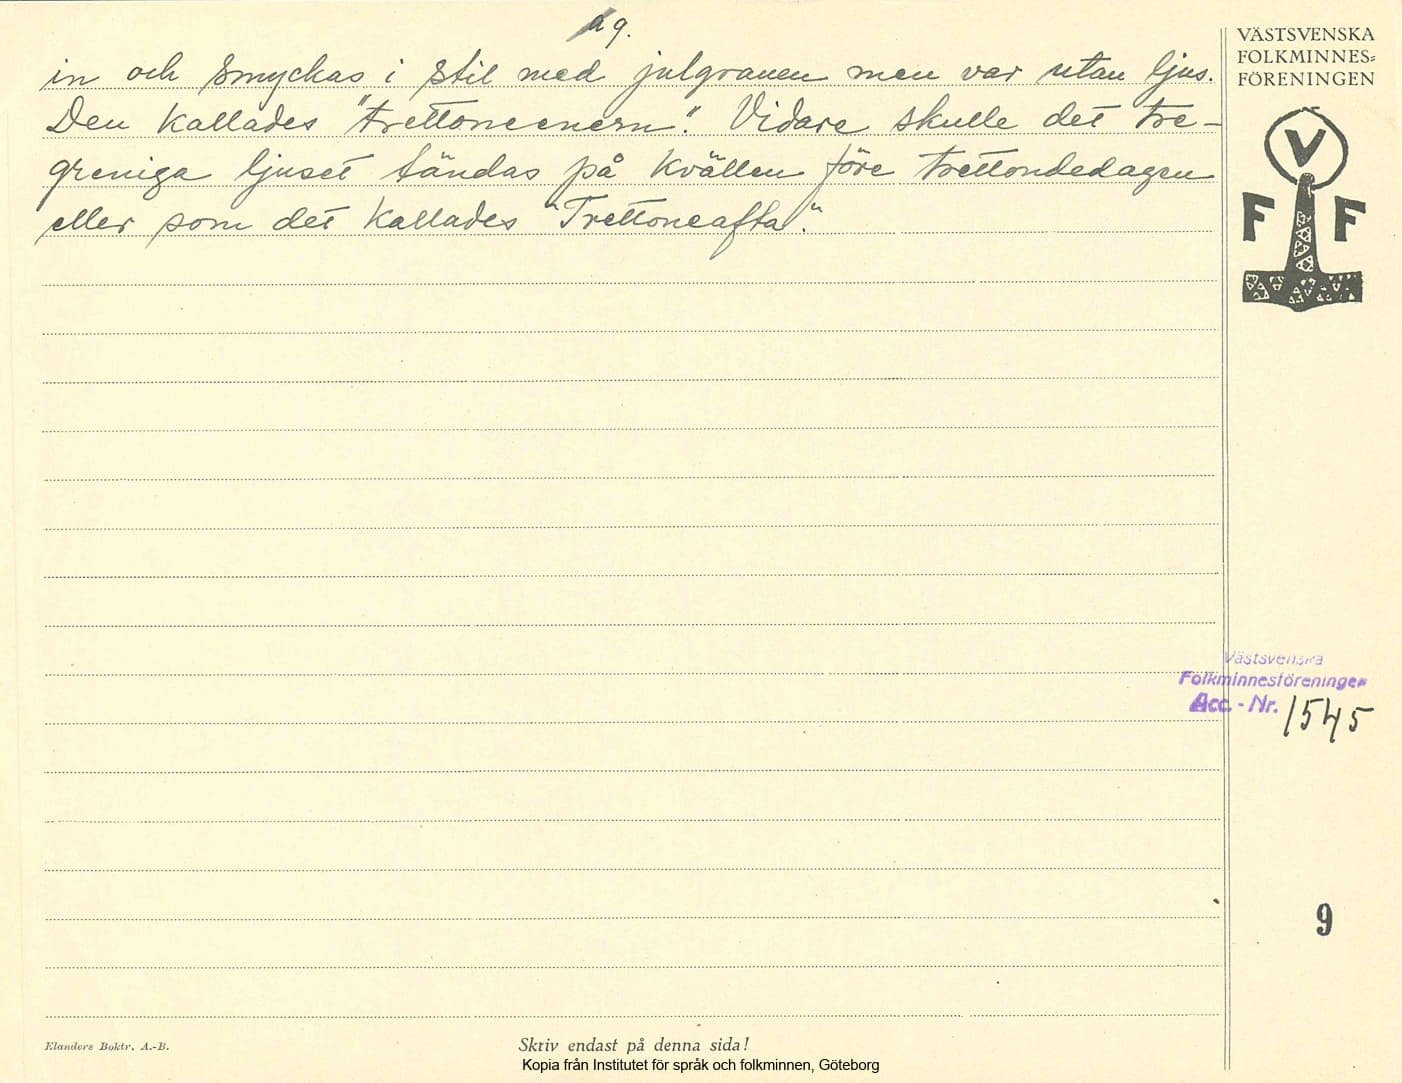 9.
in och smyckas i stil med julgranen men var utan ljus.
Den kallades "trettoneenern". Vidare skulle det tre-
greniga ljuset tändas på kvällen före trettondedagen
eller som det kallades "Trettoneafta."
VÄSTSVENSKA
FOLKMINNES=
FÖRENINGEN
V
F F
Västsvenska
Folkminnesföreningen
Acc. - Nr. 1545
9
Elanders Boktr. A.-B.
Skriv endast på denna sida!
Kopia från Institutet för språk och folkminnen, Göteborg